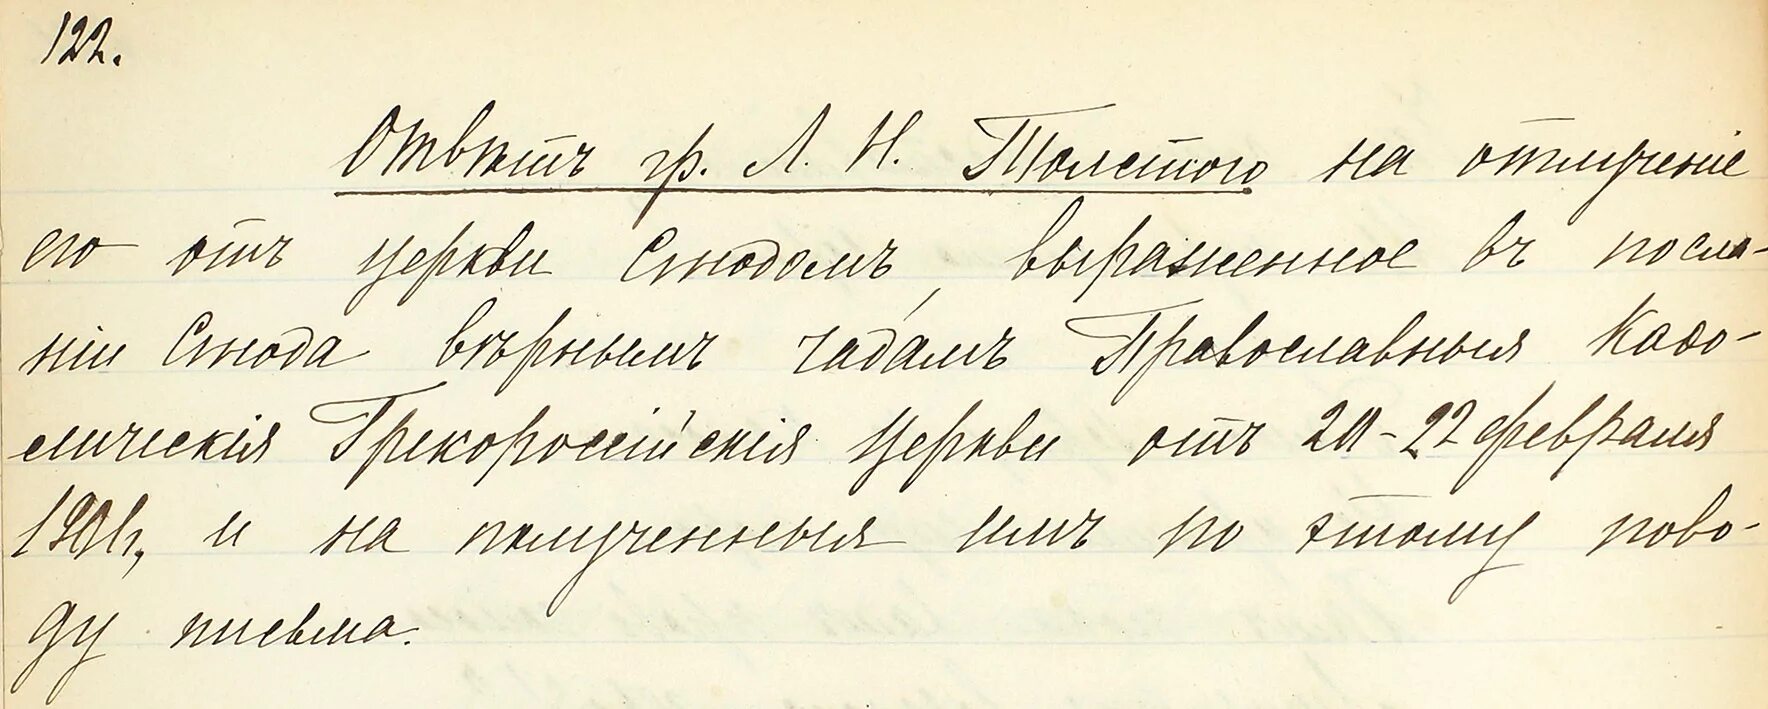 122.
Отвѣтъ гр. Л. Н. Толстого на отлученіе
его отъ церкви Синодомъ, выраженное въ посла-
ніи Синода вѣрнымъ чадамъ Православныя Каѳо-
лическія Грекороссійскія Церкви отъ 20-22 февраля
1901г, и на полученныя имъ по этому пово-
ду письма.